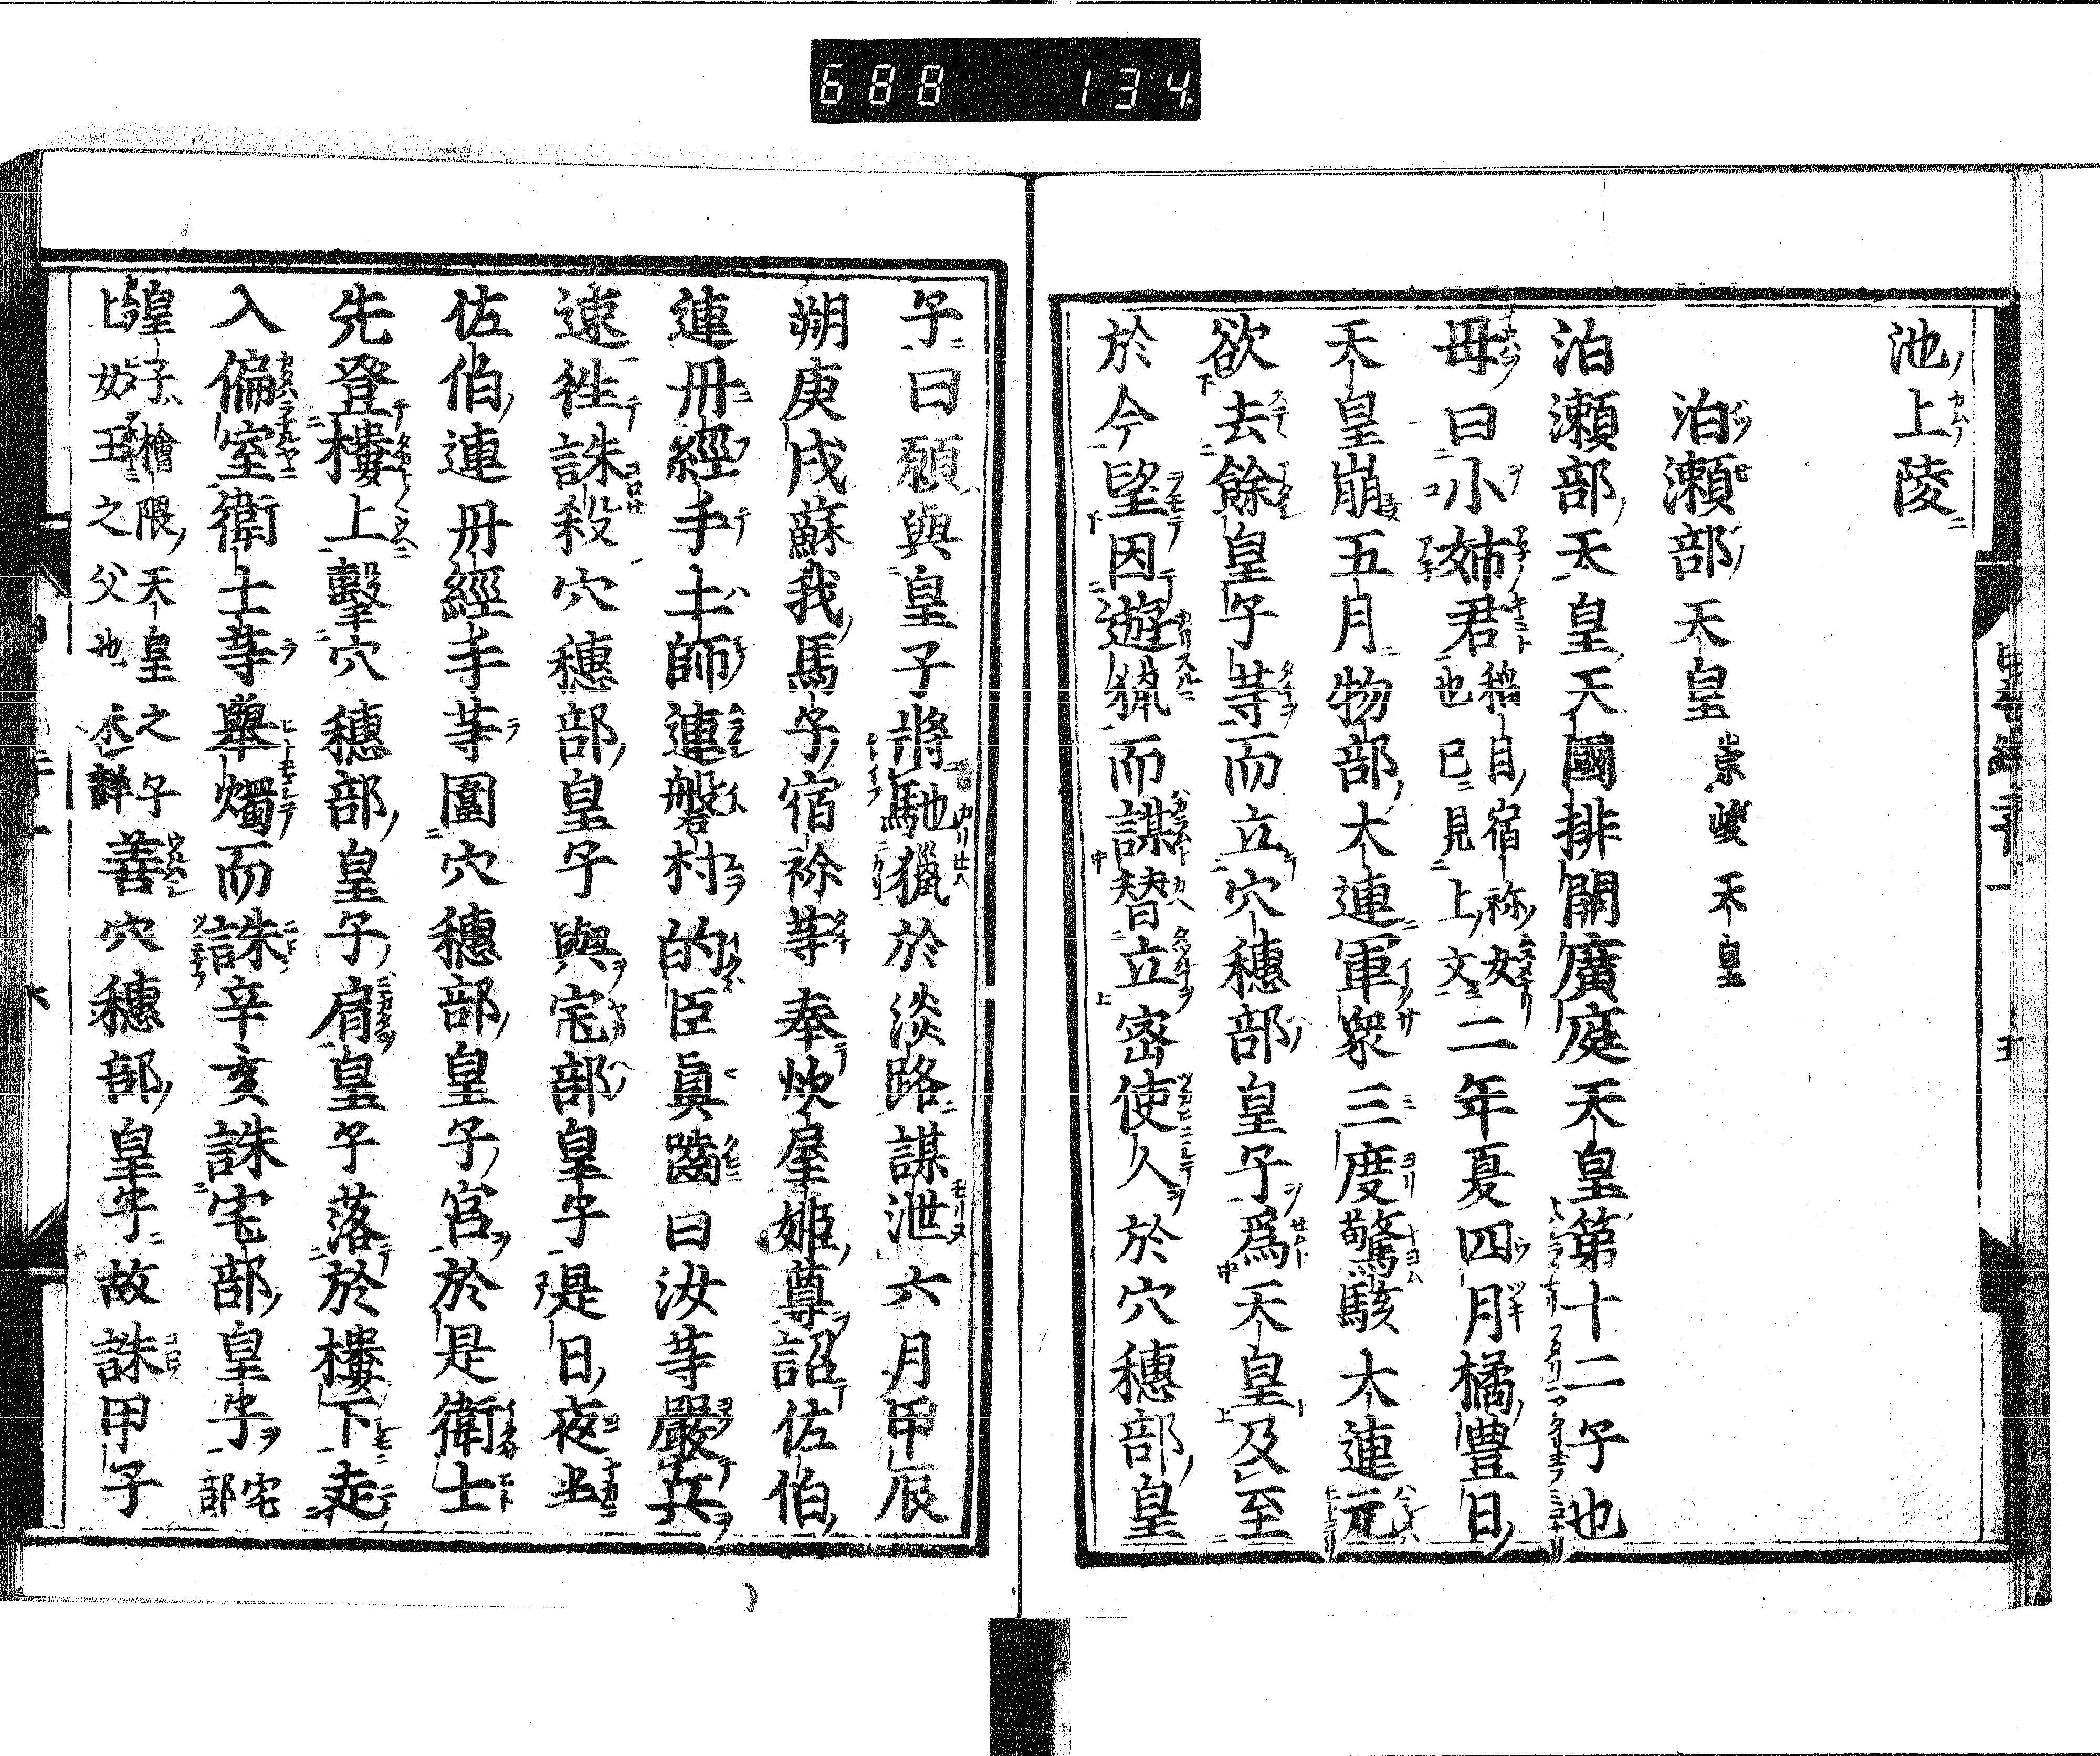 688 134
池上陵
泊瀬部天皇 崇峻天皇
泊瀬部天皇天國排開廣庭天皇第十二子也
母曰小姉君稻目宿祢女也已見上文二年夏四月橘豊日
天皇崩五月物部大連軍衆三度驚駭大連元
欲去餘皇子等而立穴穗部皇子爲天皇及至
於今望因遊猟而謀替立密使人於穴穗部皇
子曰願與皇子將馳獵於淡路謀泄六月甲辰
朔庚戌蘇我馬子宿祢等奉炊屋姫尊詔佐伯
連丹經手土師連磐村的臣眞齒曰汝等嚴兵
速徃誅殺穴穗部皇子與宅部皇子是日夜半
佐伯連丹經手等圍穴穗部皇子宮於是衛士
先登樓上擊穴穗部皇子肩皇子落於樓下走
入偏室衛士等擧燭而誅辛亥誅宅部皇子宅部
皇子檜隈天皇之子上女王之父也未詳善穴穗部皇子故誅甲子